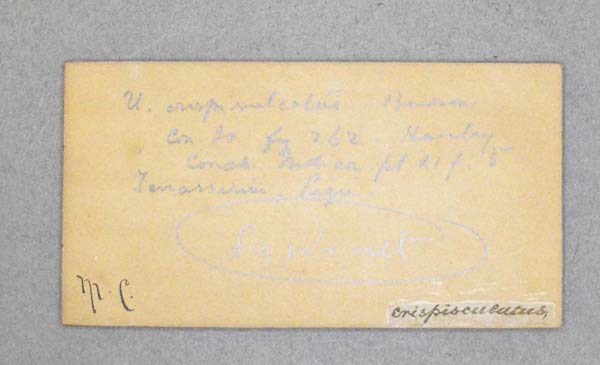 U. crispisulcatus Benson
Con Ic fig 262. Hanley
Conch. Indica pl 41 f. 5
Tenasserim, Pegu.
M. C.
crispisculatus,